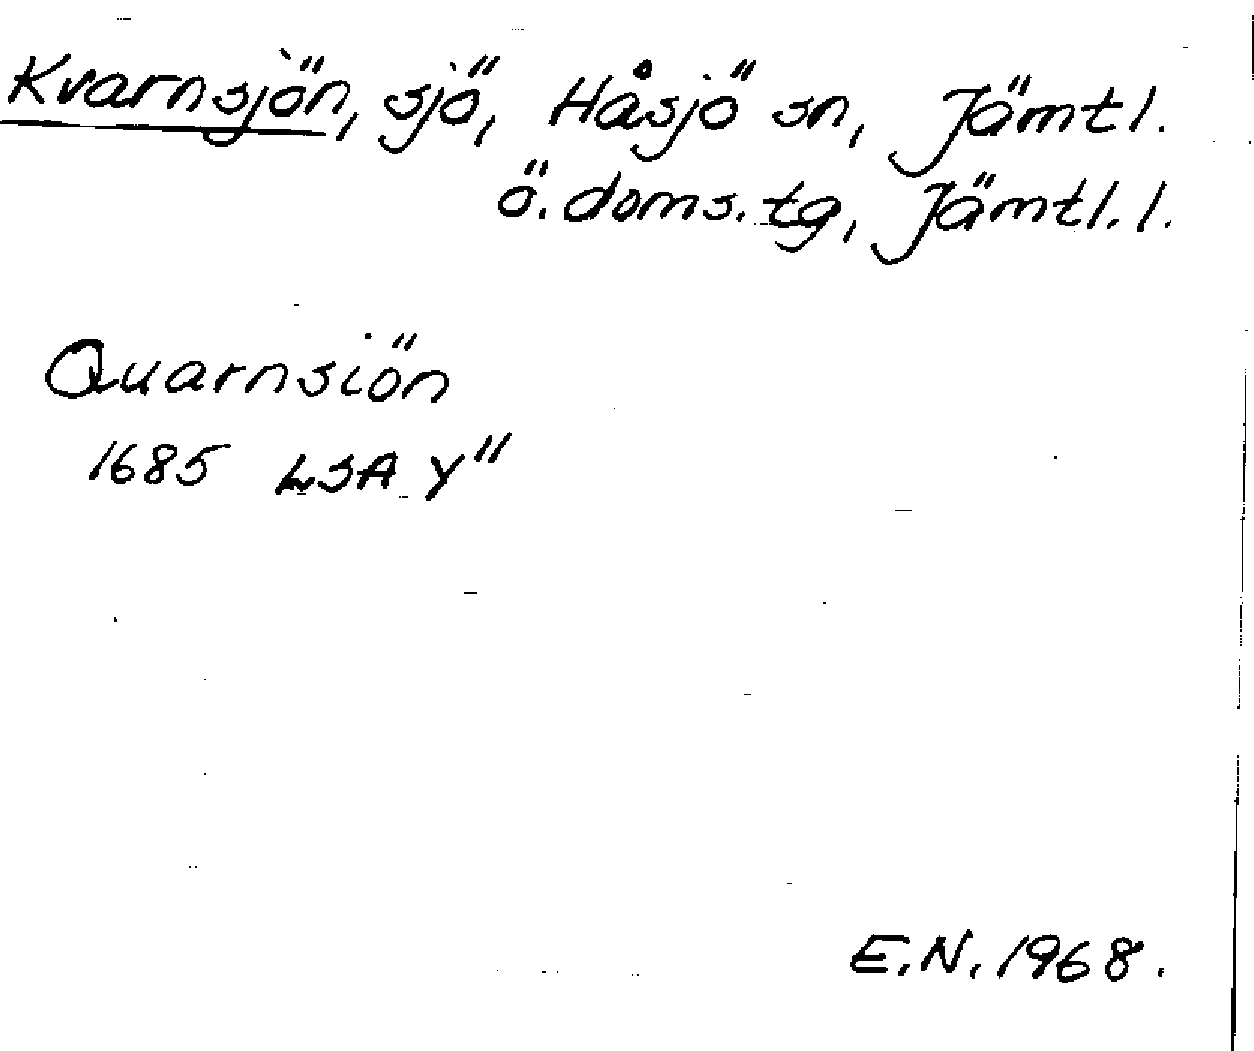 Kvarnsjön, sjö, Håsjö sn, Jämtl.
ö. doms. tg, Jämtl. l.
Quarnsiön
1685 LSA Y"
E.N. 1968.